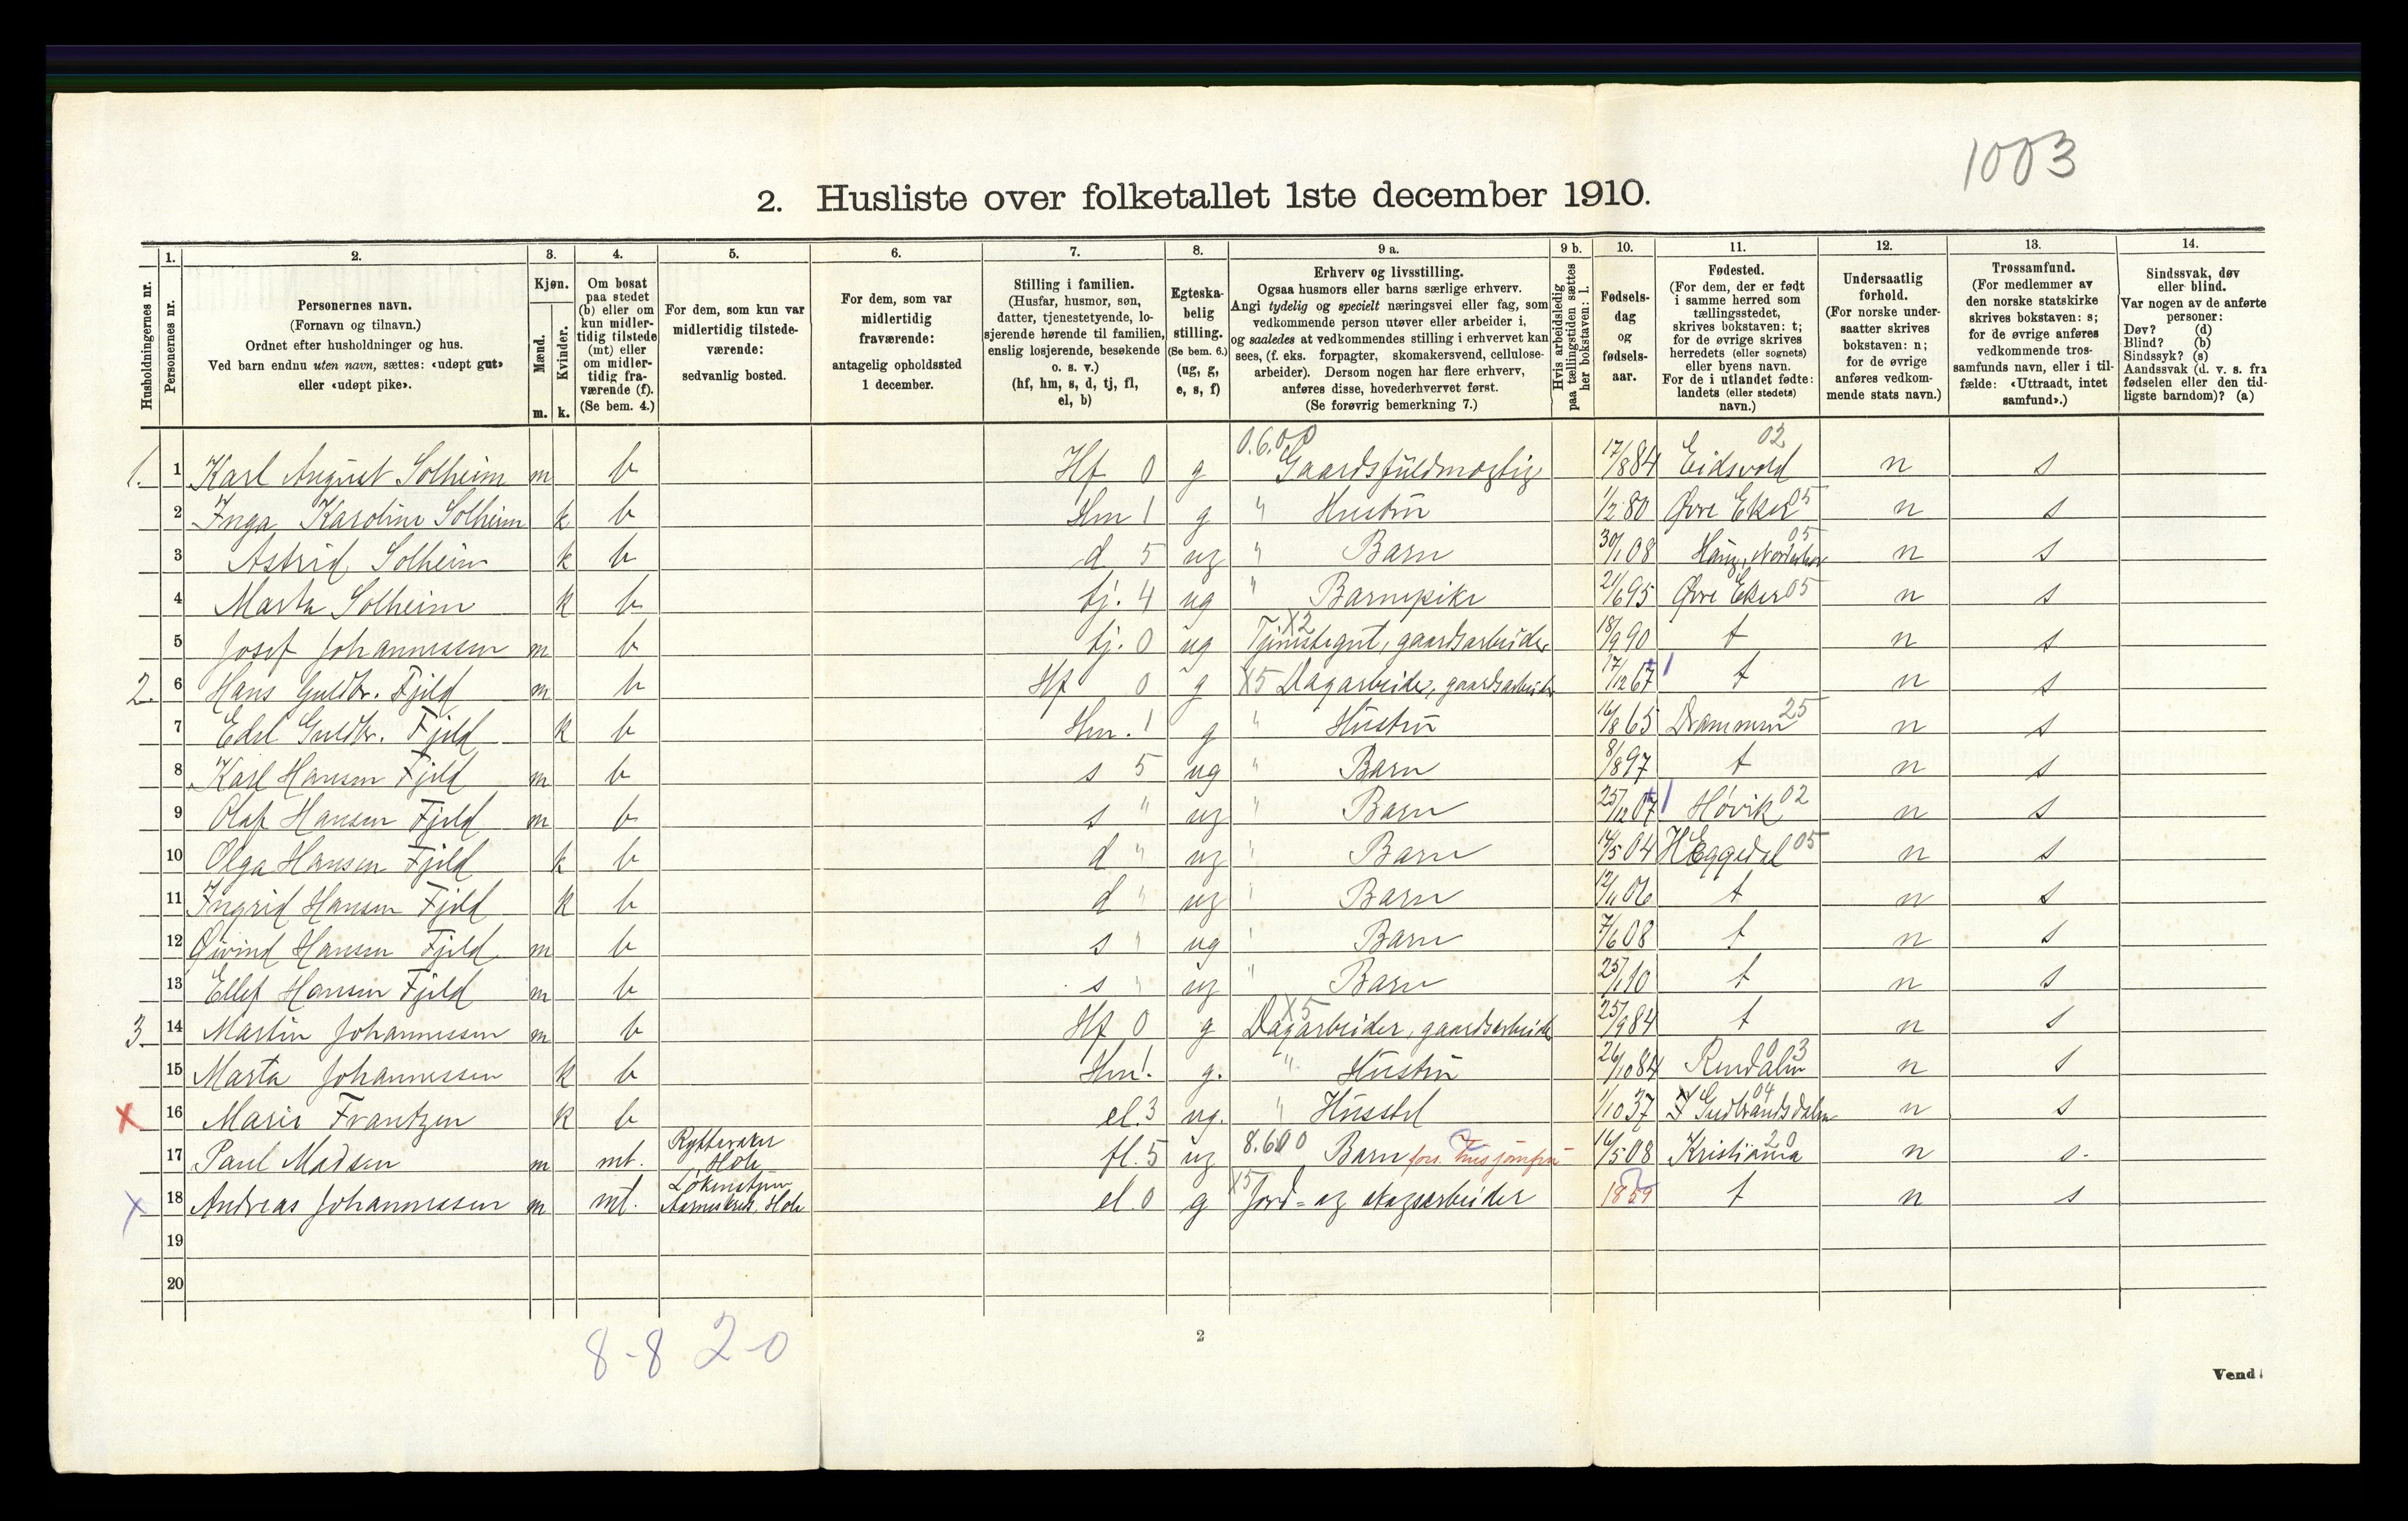 1003
2. Husliste over folketallet 1ste december 1910.
1. 2. 3. 4. 5. 6. 7. 8. 9 a. 9 b. 10. 11. 12. 13. 14.
Husholdningernes nr.
Personernes nr.
Personernes navn.
(Fornavn og tilnavn.)
Ordnet efter husholdninger og hus.
Ved barn endnu uten navn, sættes: «udøpt gut»
eller «udøpt pike».
Kjøn.
Mænd.
Kvinder.
m. k.
Om bosat
paa stedet
(b) eller om
kun midler-
tidig tilstede
(mt) eller
om midler-
tidig fra-
værende (f).
(Se bem. 4.)
For dem, som kun var
midlertidig tilstede-
værende:
sedvanlig bosted.
For dem, som var
midlertidig
fraværende:
antagelig opholdssted
1 december.
Stilling i familien.
(Husfar, husmor, søn,
datter, tjenestetyende, lo-
sjerende hørende til familien,
enslig losjerende, besøkende
o. s. v.)
(hf, hm, s, d, tj, fl,
el, b)
Egteska-
belig
stilling.
(Se bem. 6.)
(ug, g,
e, s, f)
Erhverv og livsstilling.
Ogsaa husmors eller barns særlige erhverv.
Angi tydelig og specielt næringsvei eller fag, som
vedkommende person utøver eller arbeider i,
og saaledes at vedkommendes stilling i erhvervet kan
sees, (f. eks. forpagter, skomakersvend, cellulose-
arbeider). Dersom nogen har flere erhverv,
anføres disse, hovederhvervet først.
(Se forøvrig bemerkning 7.)
Hvis arbeidsledig
paa tællingstiden sættes
her bokstaven: l.
Fødsels-
dag
og
fødsels-
aar.
Fødested.
(For dem, der er født
i samme herred som
tællingsstedet,
skrives bokstaven: t;
for de øvrige skrives
herredets (eller sognets)
eller byens navn.
For de i utlandet fødte:
landets (eller stedets)
navn.)
Undersaatlig
forhold.
(For norske under-
saatter skrives
bokstaven: n;
for de øvrige
anføres vedkom-
mende stats navn.)
Trossamfund.
(For medlemmer av
den norske statskirke
skrives bokstaven: s;
for de øvrige anføres
vedkommende tros-
samfunds navn, eller i til-
fælde: «Uttraadt, intet
samfund».)
Sindssvak, døv
eller blind.
Var nogen av de anførte
personer:
Døv? (d)
Blind? (b)
Sindssyk? (s)
Aandssvak (d. v. s. fra
fødselen eller den tid-
ligste barndom)? (a)
1. 1 Karl August Solheim m b Hf 0 g Gaardsfuldmægtig 17/8 84 Eidsvold 02 n s
2 Inga Karoline Solheim k b Hm 1 g " Hustru 1/2 80 Øvre Eker 05 n s
3 Astrid Solheim k b d 5 ug " Barn 30/1 08 Haug, Norderhov 05 n s
4 Marta Solheim k b tj. 4 ug " Barnepike 21/6 95 Øvre Eker 05 n s
5 Josef Johannessen m b tj. 0 ug X2 Tjenstegut, gaardsarbeider 18/9 90 t n s
2. 6 Hans Guldbr. Fjeld m b Hf 0 g X5 Dagarbeider, gaardsarbeider 17/12 67 t n s
7 Edel Guldbr. Fjeld k b Hm. 1 g " Hustru 16/8 65 Drammen 25 n s
8 Karl Hansen Fjeld m b s 5 ug " Barn 8/8 97 t n s
9 Olaf Hansen Fjeld m b s " ug " Barn 25/12 07 Høvik 02 n s
10 Olga Hansen Fjeld k b d " ug " Barn 14/5 04 Eggedal 05 n s
11 Ingrid Hansen Fjeld k b d " ug " Barn 12/11 06 t n s
12 Øivind Hansen Fjeld m b s " ug " Barn 7/6 08 t n s
13 Ellef Hansen Fjeld m b s " ug " Barn 25/1 10 t n s
3. 14 Martin Johannessen m b Hf 0 g X5 Dagarbeider, gaardsarbeider 25/9 84 t n s
15 Marta Johannessen k b Hm 1. g. " Hustru 26/10 84 Rendalen 03 n s
X 16 Marie Frantzen k b el. 3 ug. " Husstel 1/10 37 Gudbrandsdalen 04 n s
17 Paul Madsen m mt. Rytteraker Hole fl. 5 ug 8.600 Barn fors. Husjomfru 16/5 08 Kristiania 20 n s.
X 18 Andreas Johannessen m mt. Hole el. 0 g X5 Jord- og skogsarbeider 1859 t n s
19
20
8-8 2-0
2
Vend!